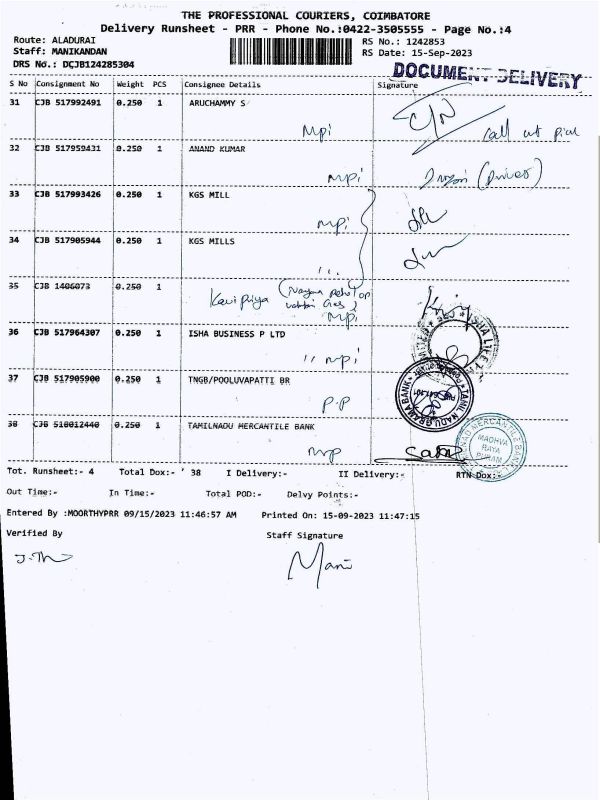 THE PROFESSIONAL COURIERS, COIMBATORE
Delivery Runsheet - PRR - Phone No.:0422-3505555 - Page No.:4
Route: ALADURAI
RS No.: 1242853
Staff: MANIKANDAN
RS Date: 15-Sep-2023
DRS No.: DCJB124285304
DOCUMENT DELIVERY
S No Consignment No Weight PCS Consignee Details Signature
31 CJB 517992491 0.250 1 ARUCHAMMY S
Mpi
32 CJB 517959431 0.250 1 ANAND KUMAR
mpi
33 CJB 517993426 0.250 1 KGS MILL
mpi
34 CJB 517905944 0.250 1 KGS MILLS
35 CJB 1406073 0.250 1
Mpi
36 CJB 517964307 0.250 1 ISHA BUSINESS P LTD
" mpi
37 CJB 517905900 0.250 1 TNGB/POOLUVAPATTI BR
P.P
38 CJB 518012440 0.250 1 TAMILNADU MERCANTILE BANK
mp
MADHVA
RAYA
PURAM
Tot. Runsheet:- 4 Total Dox:- ' 38 I Delivery:- II Delivery:- RTN Dox:-
Out Time:- In Time:- Total POD:- Delvy Points:-
Entered By :MOORTHYPRR 09/15/2023 11:46:57 AM Printed On: 15-09-2023 11:47:15
Verified By Staff Signature
Mani